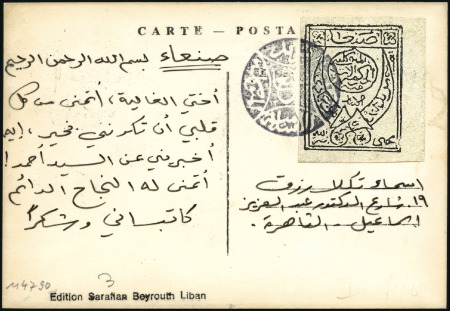 CARTE - POSTA
صنعاء بسم الله الرحمن الرحيم
أختي الغالية، أتمنى من كل
قلبي أن تكوني بخير،
أخبريني عن السيد أحمد!
أتمنى له النجاح الدائم
وشكراً
صنعا
اسماء تكلا رزق
١٩ شارع الدكتور عبد العزيز
اسماعيل - القاهرة.
114790
3
Edition Sarafian Beyrouth Liban